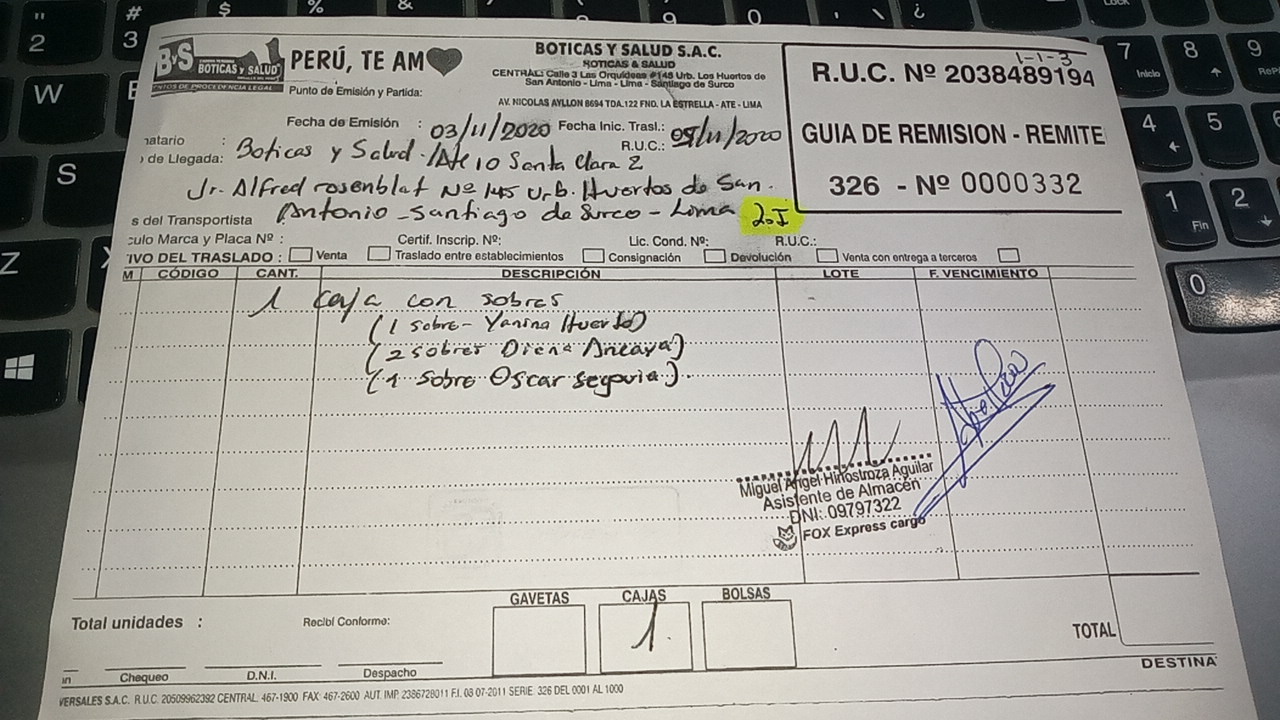 BS
BOTICAS y SALUD
NTOS DE PROCEDENCIA LEGAL
PERÚ, TE AM
BOTICAS Y SALUD S.A.C.
BOTICAS & SALUD
CENTRAL: Calle 3 Las Orquídeas #148 Urb. Los Huertos de
San Antonio - Lima - Lima - Santiago de Surco
Punto de Emisión y Partida:
AV. NICOLAS AYLLON 8694 TDA.122 FND. LA ESTRELLA - ATE - LIMA
1-1-3
R.U.C. Nº 2038489194
GUIA DE REMISION - REMITE
326 - Nº 0000332
Fecha de Emisión : 03/11/2020 Fecha Inic. Trasl.: 05/11/2020
natario :
R.U.C.:
de Llegada: Boticas y Salud. /Ate 10 Santa Clara 2
Jr. Alfred rosenblat Nº 145 Urb. Huertos de San.
s del Transportista Antonio - Santiago de Surco - Lima 2.I
culo Marca y Placa Nº : Certif. Inscrip. Nº: Lic. Cond. Nº: R.U.C.:
IVO DEL TRASLADO : Venta Traslado entre establecimientos Consignación Devolución Venta con entrega a terceros
M CÓDIGO CANT. DESCRIPCIÓN LOTE F. VENCIMIENTO
1 Caja con sobres
(1 sobre - Yanina Huerto)
(2 sobres Diena Ancaya)
(1 sobre Oscar segovia).
Miguel Angel Hinostroza Aguilar
Asistente de Almacén
DNI: 09797322
FOX Express cargo
GAVETAS CAJAS BOLSAS
1.
Total unidades : Recibí Conforme:
TOTAL
in Chequeo D.N.I. Despacho
DESTINA
VERSALES S.A.C. R.U.C. 20509962392 CENTRAL: 467-1900 FAX: 467-2600 AUT. IMP. 2386728011 F.I. 08 07-2011 SERIE. 326 DEL 0001 AL 1000